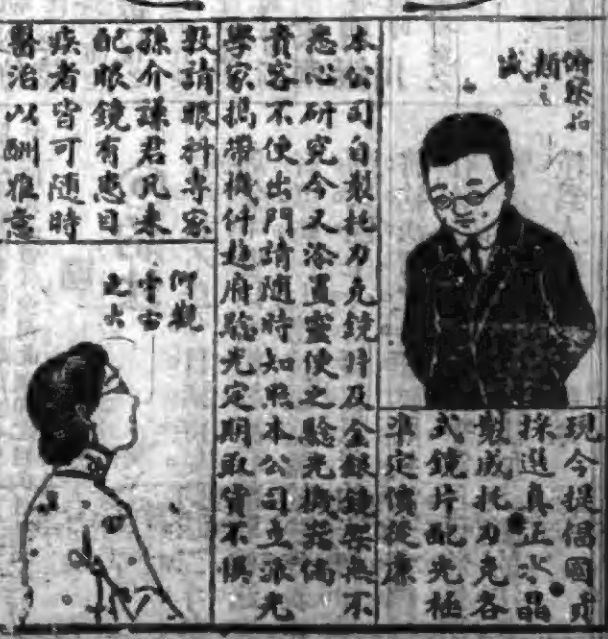 俯察品
類之
盛
現今提倡國貨
採選真正水晶
製成托力克各
式鏡片配光極
準定價從廉
本公司自製托力克鏡片及金銀鏡架無不
悉心研究今又添置靈便之驗光機器倘
貴客不便出門請隨時知照本公司立派光
學家攜帶機件趋府驗光定期取貨不悮
敦請眼科專家
孫介謙君凡來
配眼鏡有患目
疾者皆可隨時
醫治以酬雅意
仰觀
宇宙
之大